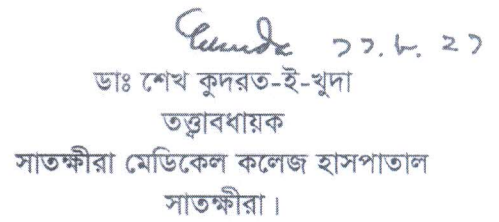 ১১.৮.২১
ডাঃ শেখ কুদরত-ই-খুদা
তত্ত্বাবধায়ক
সাতক্ষীরা মেডিকেল কলেজ হাসপাতাল
সাতক্ষীরা।